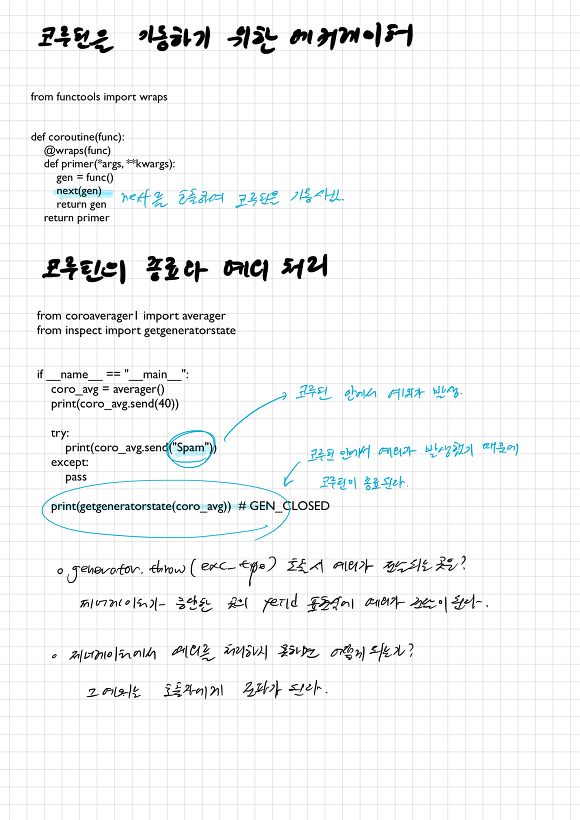 코루틴을 가동하기 위한 데커레이터
from functools import wraps
def coroutine(func):
@wraps(func)
def primer(*args, **kwargs):
gen = func()
next(gen)
next를 호출하여 코루틴을 가동시킨다.
return gen
return primer
코루틴의 종료와 예외 처리
from coroaverager1 import averager
from inspect import getgeneratorstate
if __name__ == "__main__":
coro_avg = averager()
print(coro_avg.send(40))
코루틴 안에서 예외가 발생.
try:
print(coro_avg.send("Spam"))
except:
pass
코루틴 안에서 예외가 발생했기 때문에
코루틴이 종료된다.
print(getgeneratorstate(coro_avg)) # GEN_CLOSED
o generator.throw(exc_type) 호출시 예외가 전달되는 곳은?
제너레이터가 중단한 곳의 yield 표현식에 예외가 전달이 된다.
o 제너레이터에서 예외를 처리하지 못하면 어떻게 되는가?
그 예외는 호출자에게 전파가 된다.